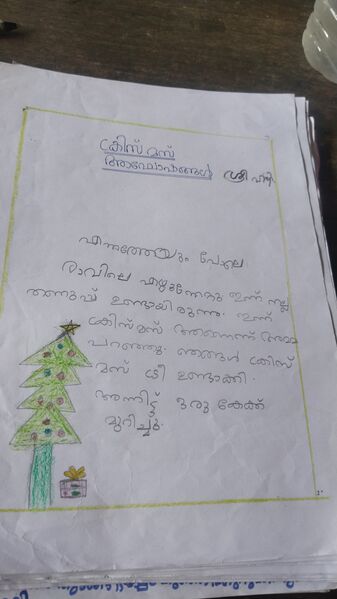 ക്രിസ്മസ്
ആഘോഷങ്ങൾ ശ്രീഹരി
എന്നത്തേയും പോലെ
രാവിലെ എഴുന്നേറ്റു ഇന്ന് നല്ല
തണുപ്പ് ഉണ്ടായിരുന്നു. ഇന്ന്
ക്രിസ്മസ് ആണെന്ന് അമ്മ
പറഞ്ഞു. ഞങ്ങൾ ക്രിസ്
മസ് ട്രീ ഉണ്ടാക്കി.
അന്നിട്ട് ഒരു കേക്ക്
മുറിച്ചു.